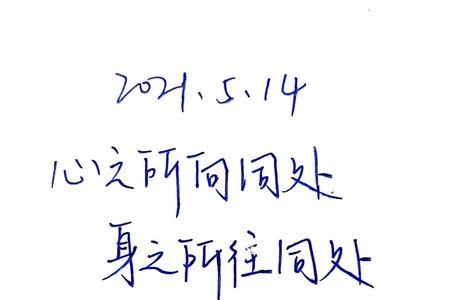 2021.5.14
心之所向同处
身之所往同处